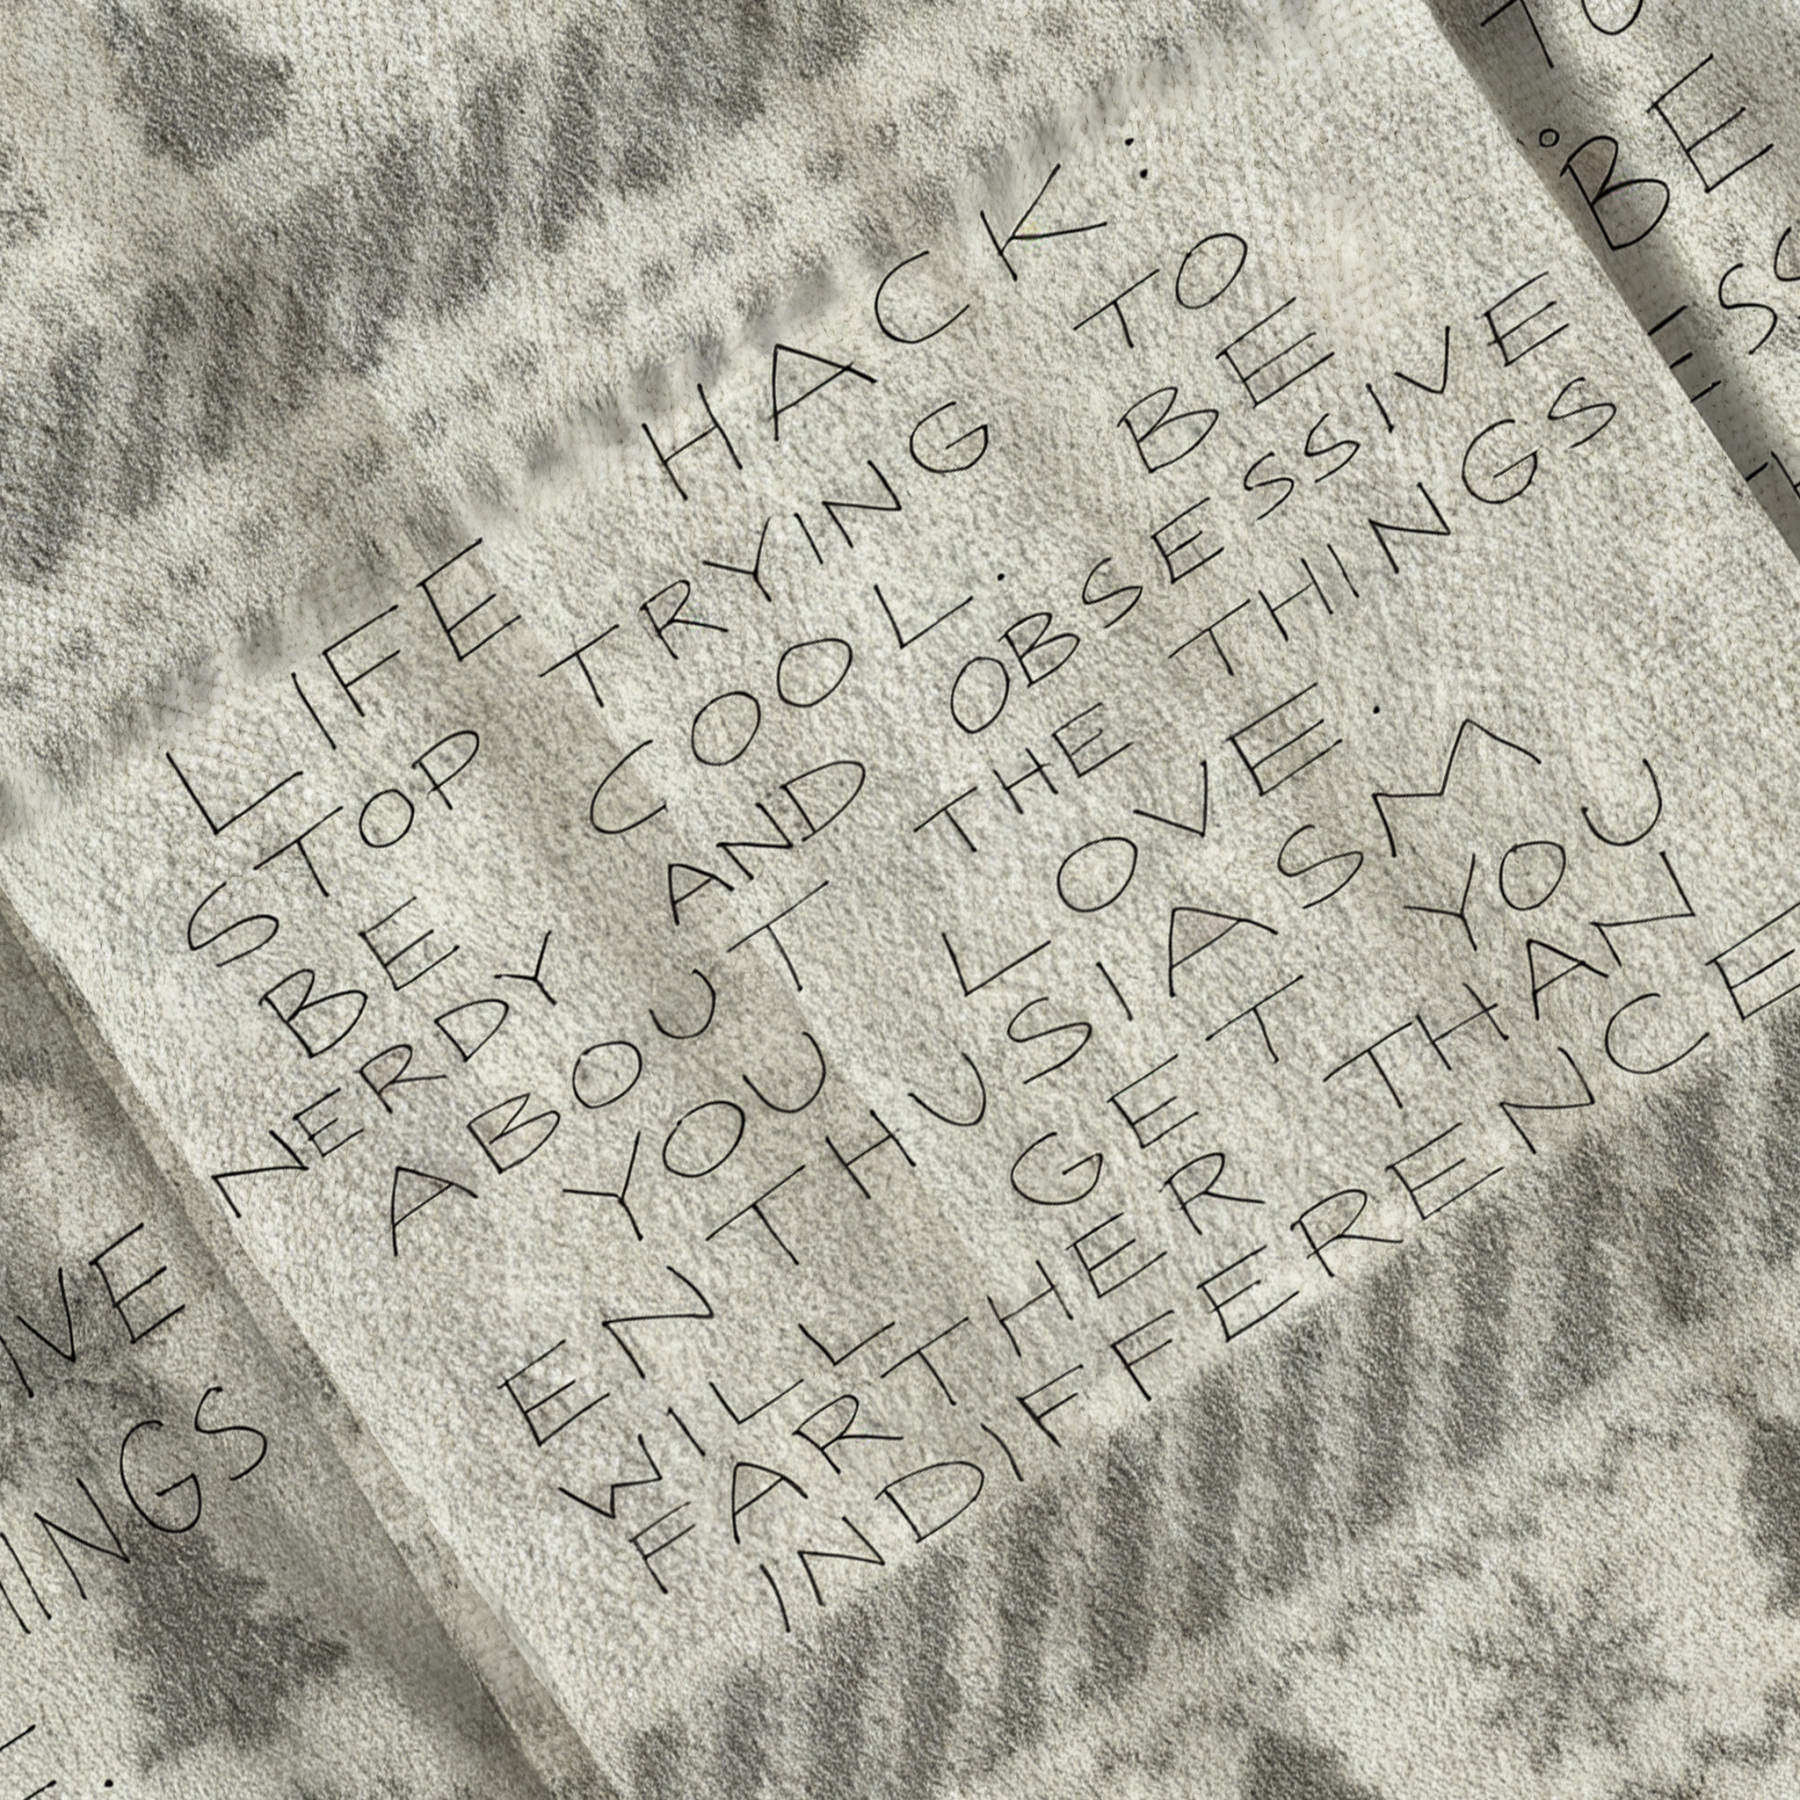 LIFE HACK:
STOP TRYING TO
BE COOL. BE
NERDY AND OBSESSIVE
ABOUT THE THINGS
YOU LOVE.
ENTHUSIASM
WILL GET YOU
FARTHER THAN
INDIFFERENCE
TO
BE
IVE
INGS